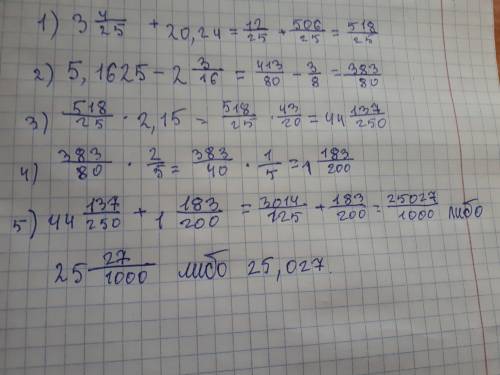 1) 3 4/25 + 20,24 = 12/25 + 506/25 = 518/25
2) 5,1625 - 2 3/16 = 413/80 - 3/8 = 383/80
3) 518/25 · 2,15 = 518/25 · 43/20 = 44 137/250
4) 383/80 · 2/5 = 383/40 · 1/5 = 1 183/200
5) 44 137/250 + 1 183/200 = 3014/125 + 183/200 = 25027/1000 либо
25 27/1000 либо 25,027.